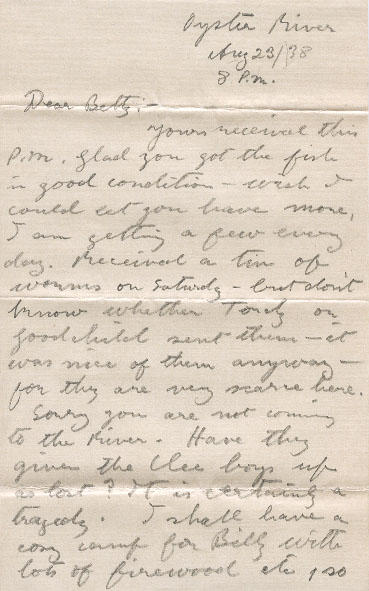 Oyster River
Aug 23/38
8 P.m.
Dear Betty:-
Yours received this
P.m. Glad you got the fish
in good condition - wish I
could let you have more,
I am getting a few every
day. Received a tin of
worms on Saturdy - but don't
know whether Tordy or
Goodchild sent them - it
was nice of them anyway -
for they are very scarce here.
Sorry you are not coming
to the River. Have they
given the Clee boys up
as lost? It is certainly a
tragedy. I shall have a
cosy camp for Billy with
lots of firewood etc, so